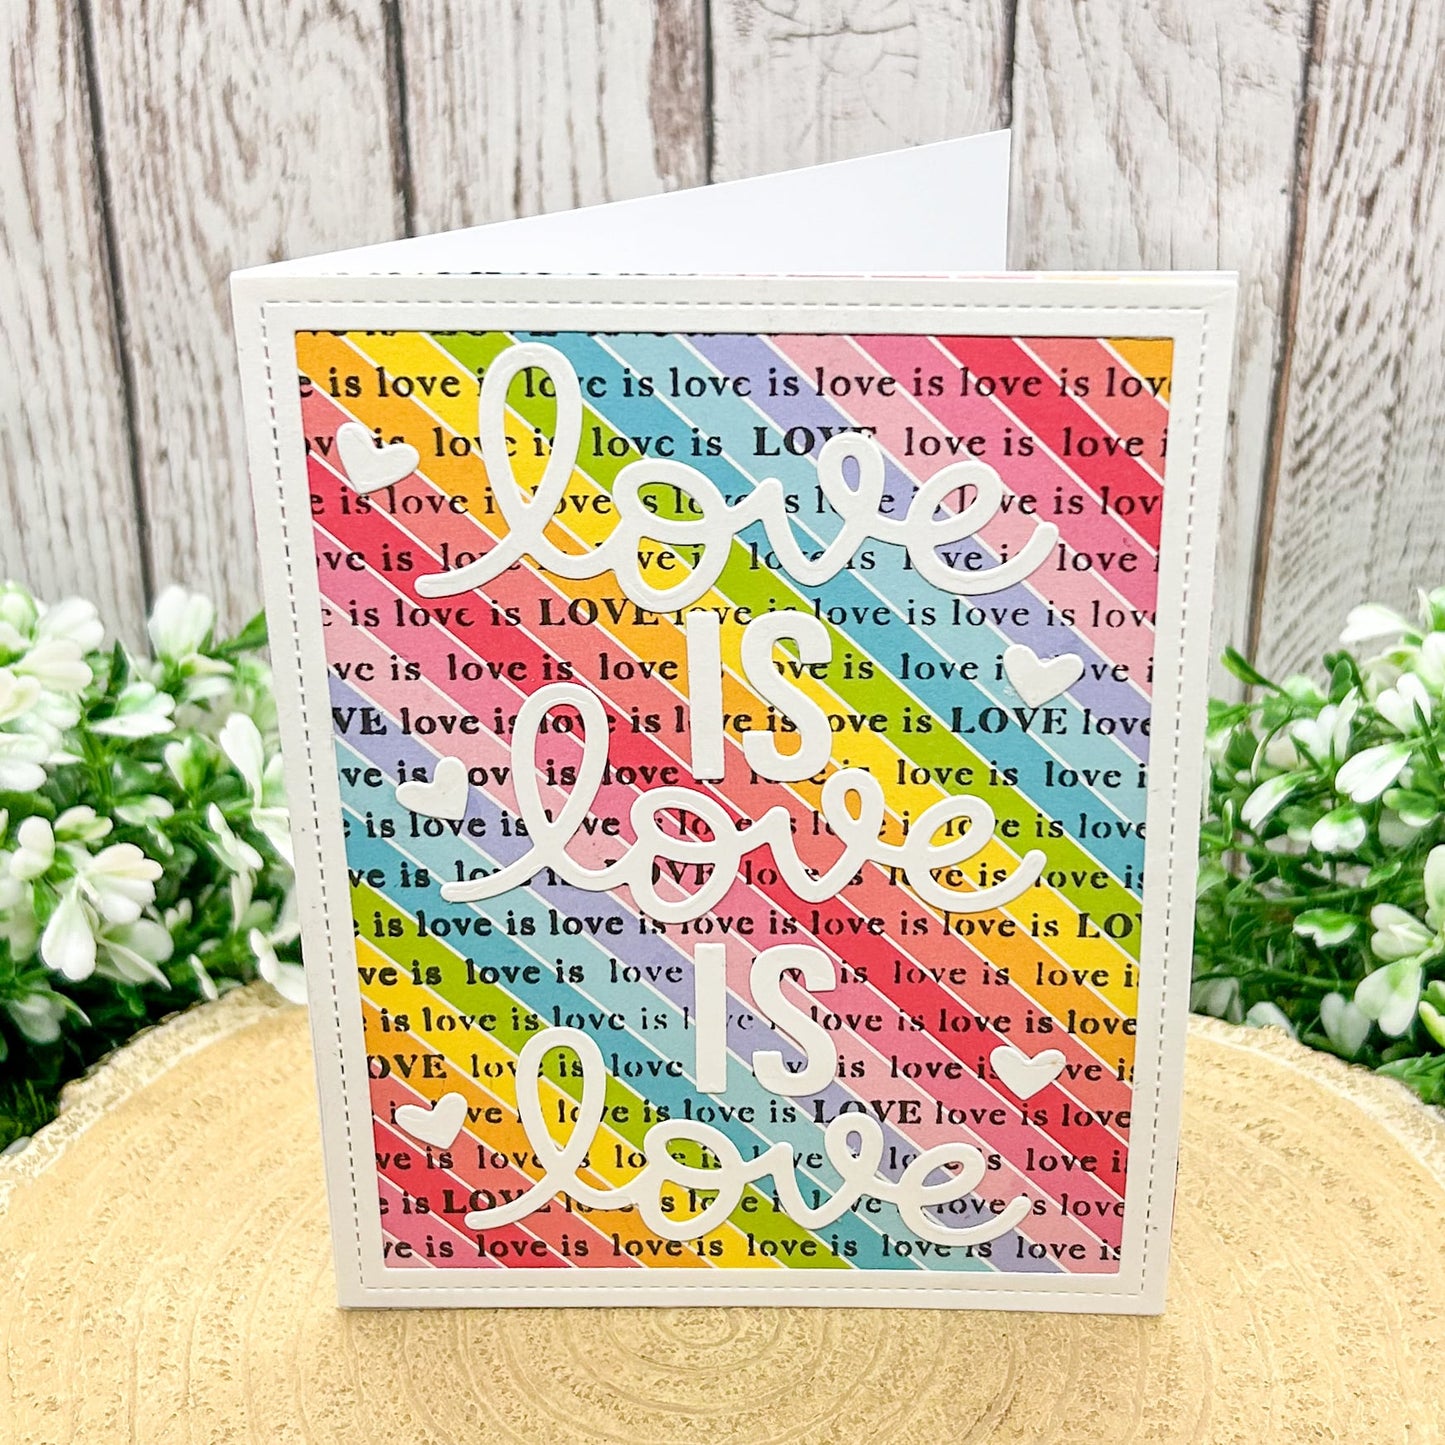 love
IS
love
IS
love
is love is love is love is love is love is lov
love is love is LOVE love is love
is love is love is love is love is lov
love is love is love is love is love
is love is LOVE love is love is love is lov
love is love is love is love is love is
LOVE love is love is love is love is LOVE love
love is love is love is love is love is
is love is love is love is love is love
love is love is LOVE love is love is love is
is love is love is love is love is love is LO
love is love is love is love is love is
is love is love is love is love is love is love
LOVE love is love is love is
is love is love is love is LOVE love is love
love is love is love is love is love is
is LOVE love is love is love is love
love is love is love is love is love is love is